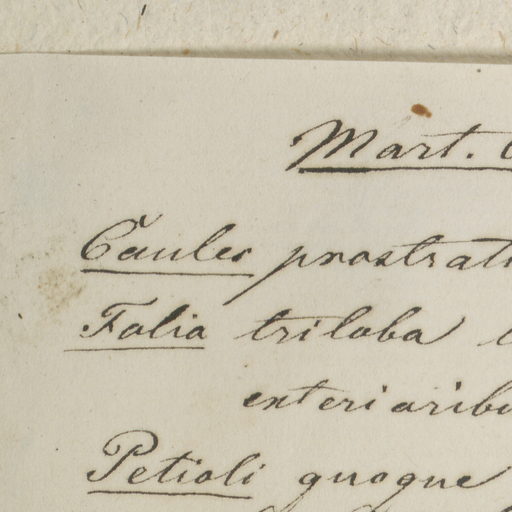 Mart.
Caules prostrati
Folia triloba
exterioribu
Petioli quoque